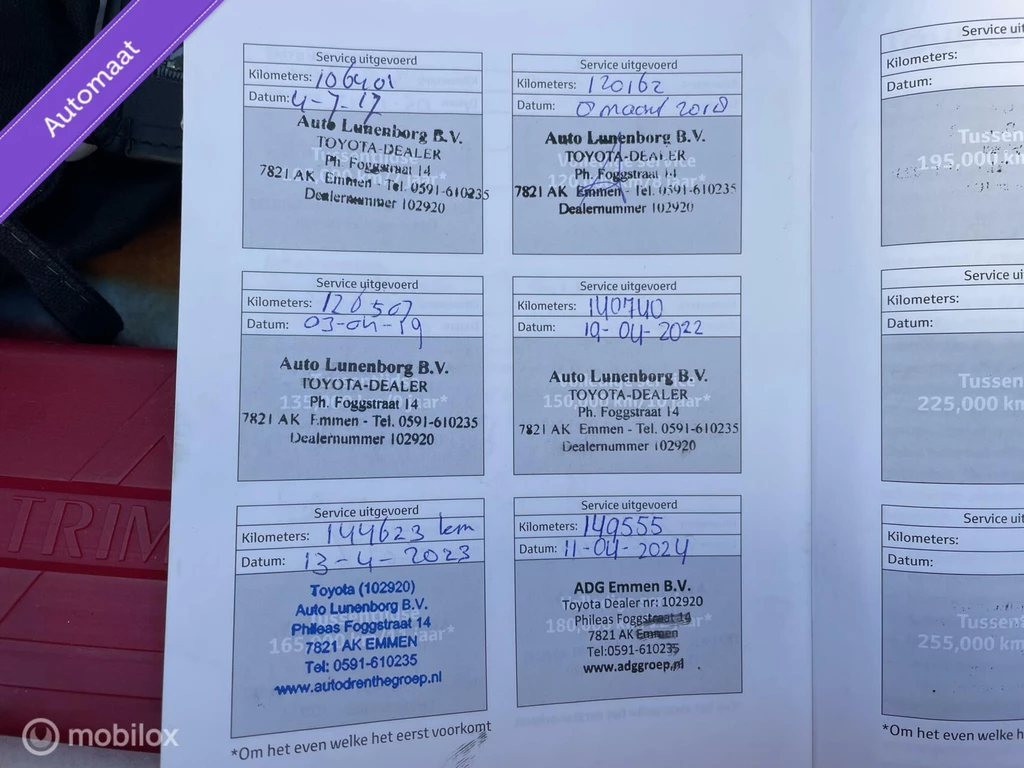 Automaat
Service uitgevoerd
Kilometers: 106401
Datum: 4-7-17
Auto Lunenborg B.V.
TOYOTA-DEALER
Ph. Foggstraat 14
7821 AK Emmen - Tel. 0591-610235
Dealernummer 102920
Service uitgevoerd
Kilometers: 120162
Datum: maart 2018
Auto Lunenborg B.V.
TOYOTA-DEALER
Ph. Foggstraat 14
7821 AK Emmen - Tel. 0591-610235
Dealernummer 102920
Service uitgevoerd
Kilometers: 126507
Datum: 03-04-19
Auto Lunenborg B.V.
TOYOTA-DEALER
135,000
Ph. Foggstraat 14
7821 AK Emmen - Tel. 0591-610235
Dealernummer 102920
Service uitgevoerd
Kilometers: 140740
Datum: 19-04-2022
Auto Lunenborg B.V.
TOYOTA-DEALER
150,000 km/10 jaar*
Ph. Foggstraat 14
7821 AK Emmen - Tel. 0591-610235
Dealernummer 102920
Service uitgevoerd
Kilometers: 144623 km
Datum: 13-4-2023
Toyota (102920)
Auto Lunenborg B.V.
Phileas Foggstraat 14
7821 AK EMMEN
Tel: 0591-610235
www.autodrenthegroep.nl
Service uitgevoerd
Kilometers: 149555
Datum: 11-04-2024
ADG Emmen B.V.
Toyota Dealer nr: 102920
Phileas Foggstraat 14
180,000
7821 AK Emmen
Tel:0591-610235
www.adggroep.nl
*Om het even welke het eerst voorkomt
Service uit
Kilometers:
Datum:
Tussen
195,000 km
Service u
Kilometers:
Datum:
Tussen
225,000 km
Service uit
Kilometers:
Datum:
Tussen
255,000 km
*Om het even welke h
TRIM
mobilox